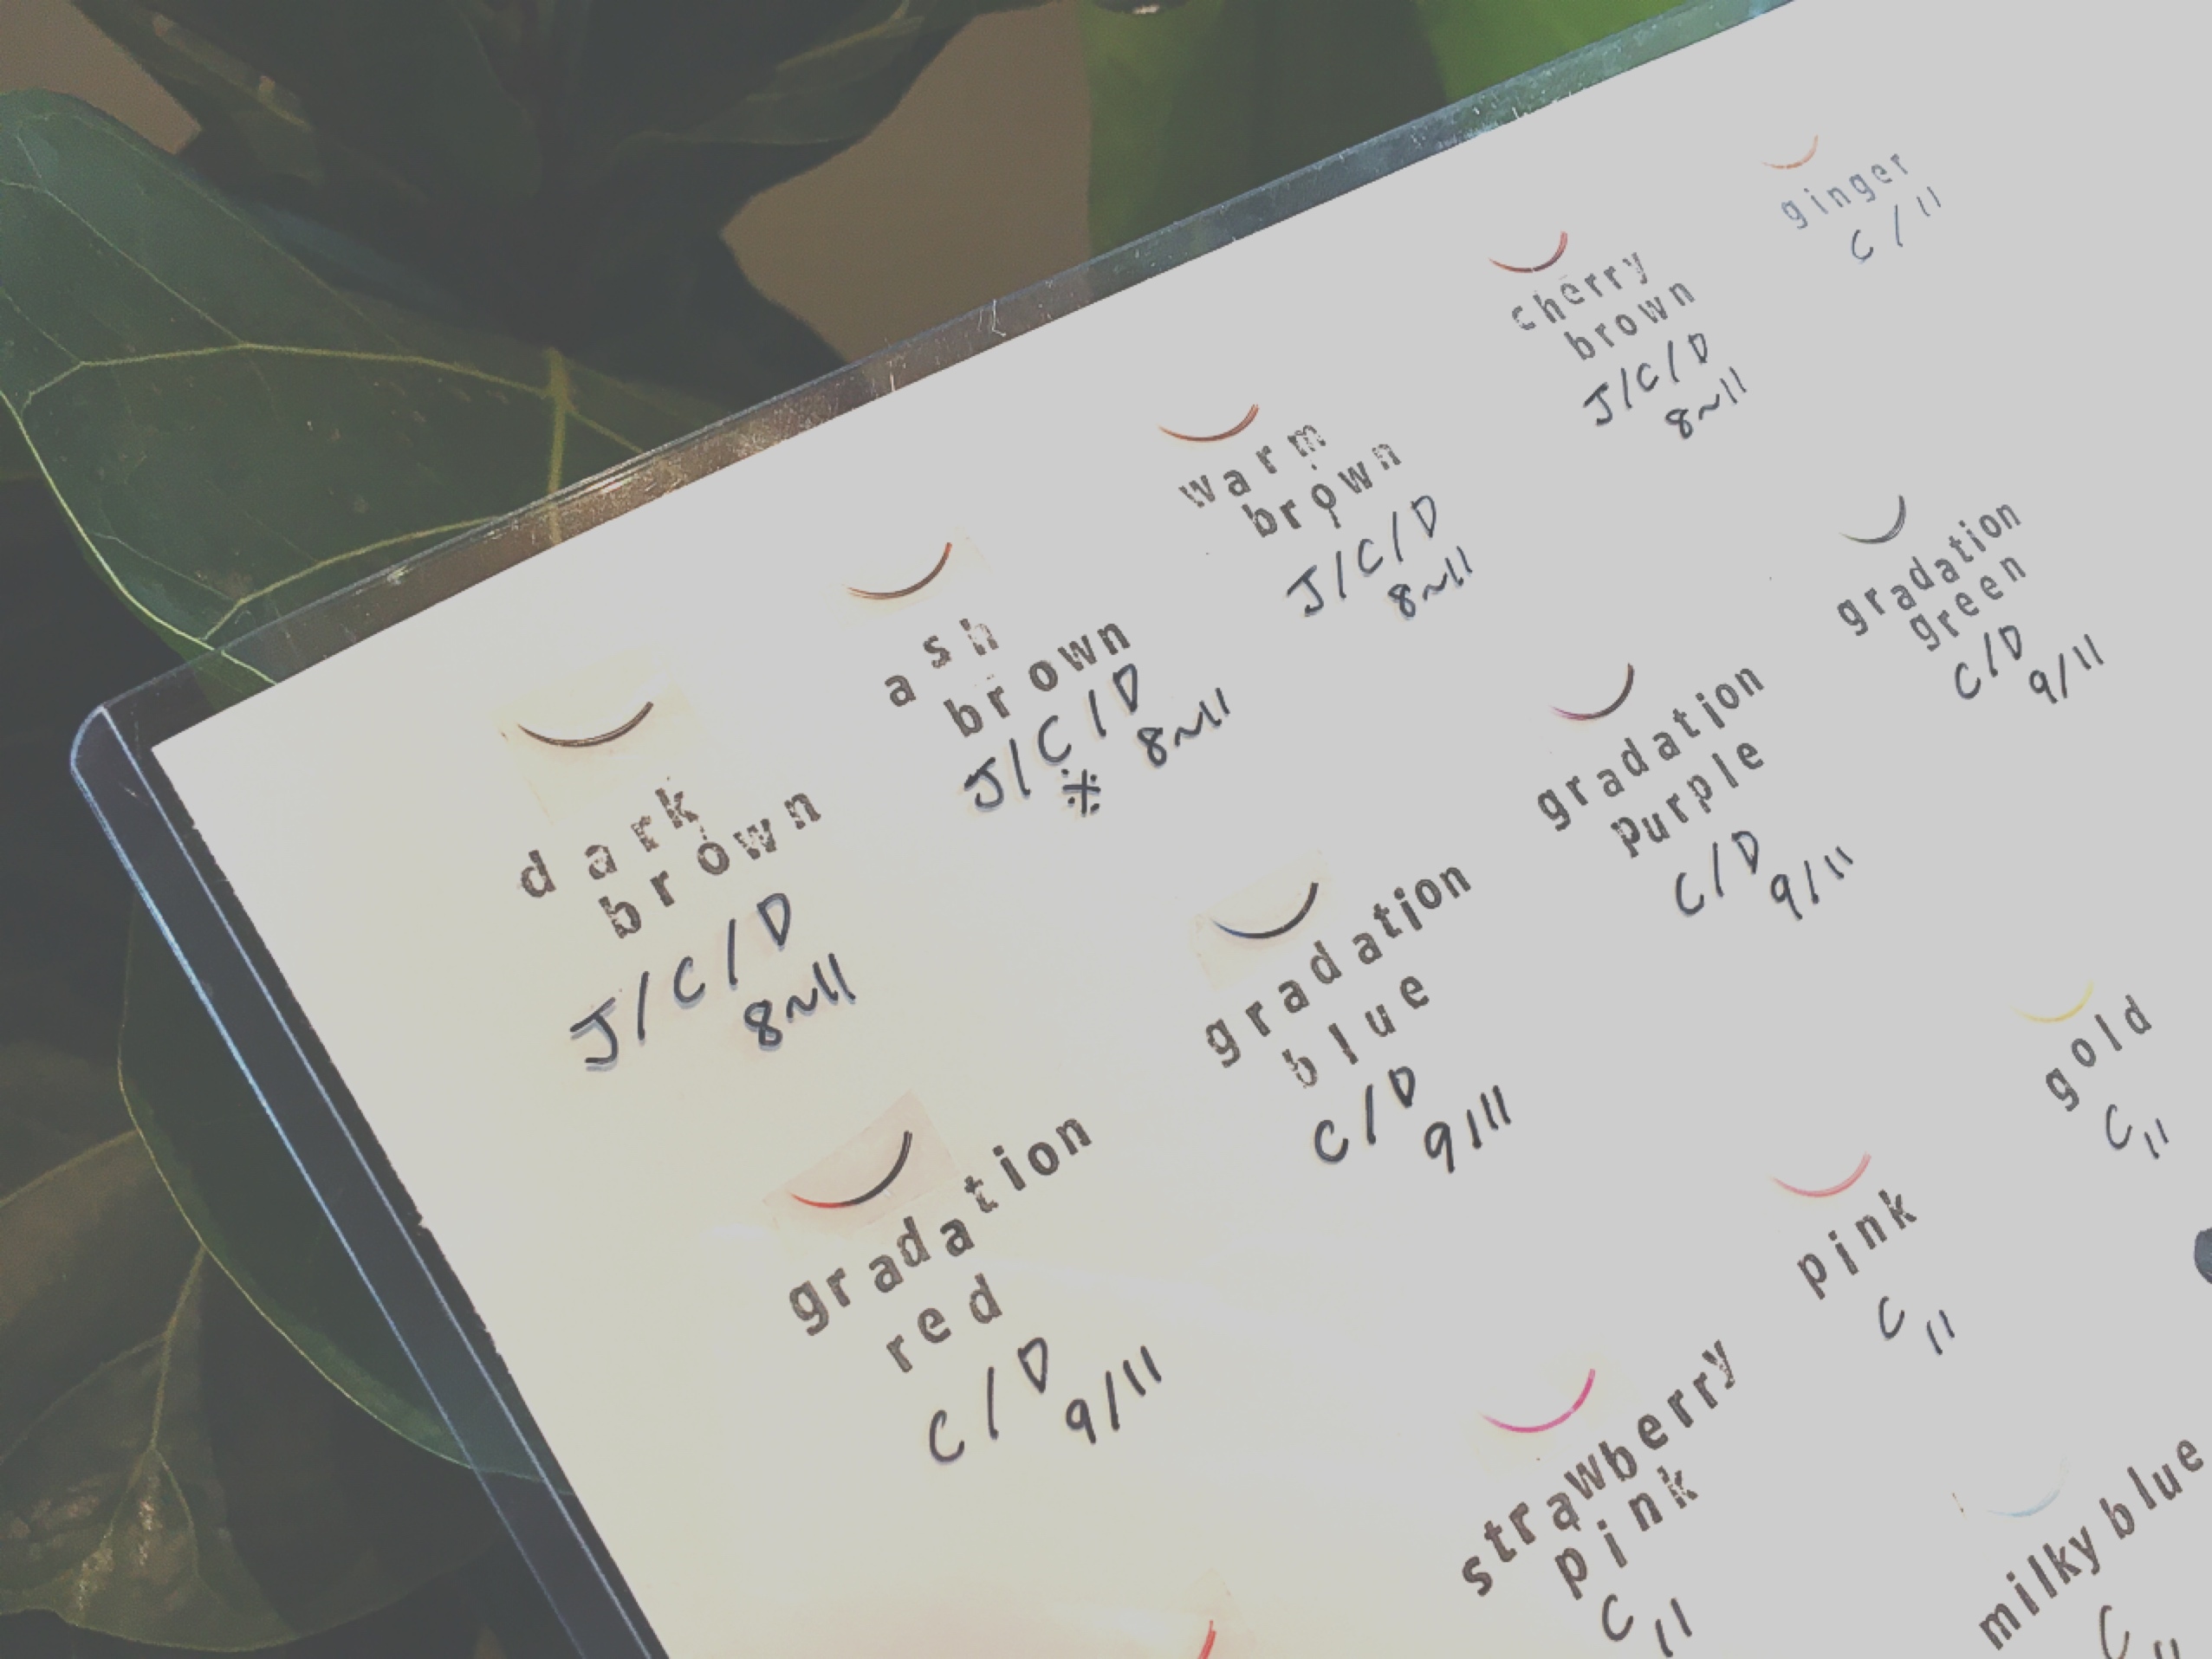 dark
brown
J/C/D
8~11
ash
brown
J/C/D
※ 8~11
warm
brown
J/C/D
8~11
cherry
brown
J/C/D
8~11
ginger
C/11
gradation
red
C/D
9/11
gradation
blue
C/D
9/11
gradation
purple
C/D
9/11
gradation
green
C/D
9/11
strawberry
pink
C
11
pink
C
11
gold
C
11
milky blue
C
11